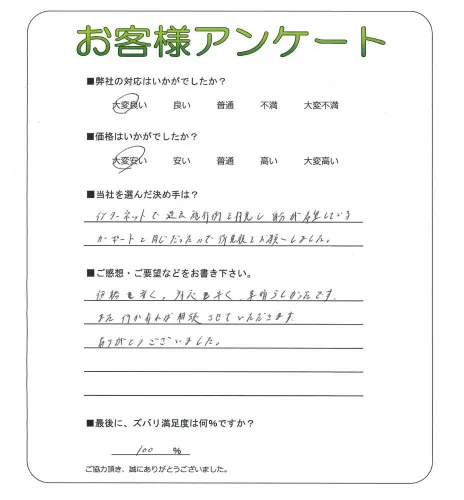 お客様アンケート
■弊社の対応はいかがでしたか？
大変良い 良い 普通 不満 大変不満
■価格はいかがでしたか？
大変安い 安い 普通 高い 大変高い
■当社を選んだ決め手は？
インターネットで過去施行例を拝見し 自分が希望している
カーポートと同じだったので御見積をお願いしました。
■ご感想・ご要望などをお書き下さい。
価格も安く、対応も早く、素晴らしかったです。
また何かあれば相談させていただきます
ありがとうございました。
■最後に、ズバリ満足度は何%ですか？
100 %
ご協力頂き、誠にありがとうございました。